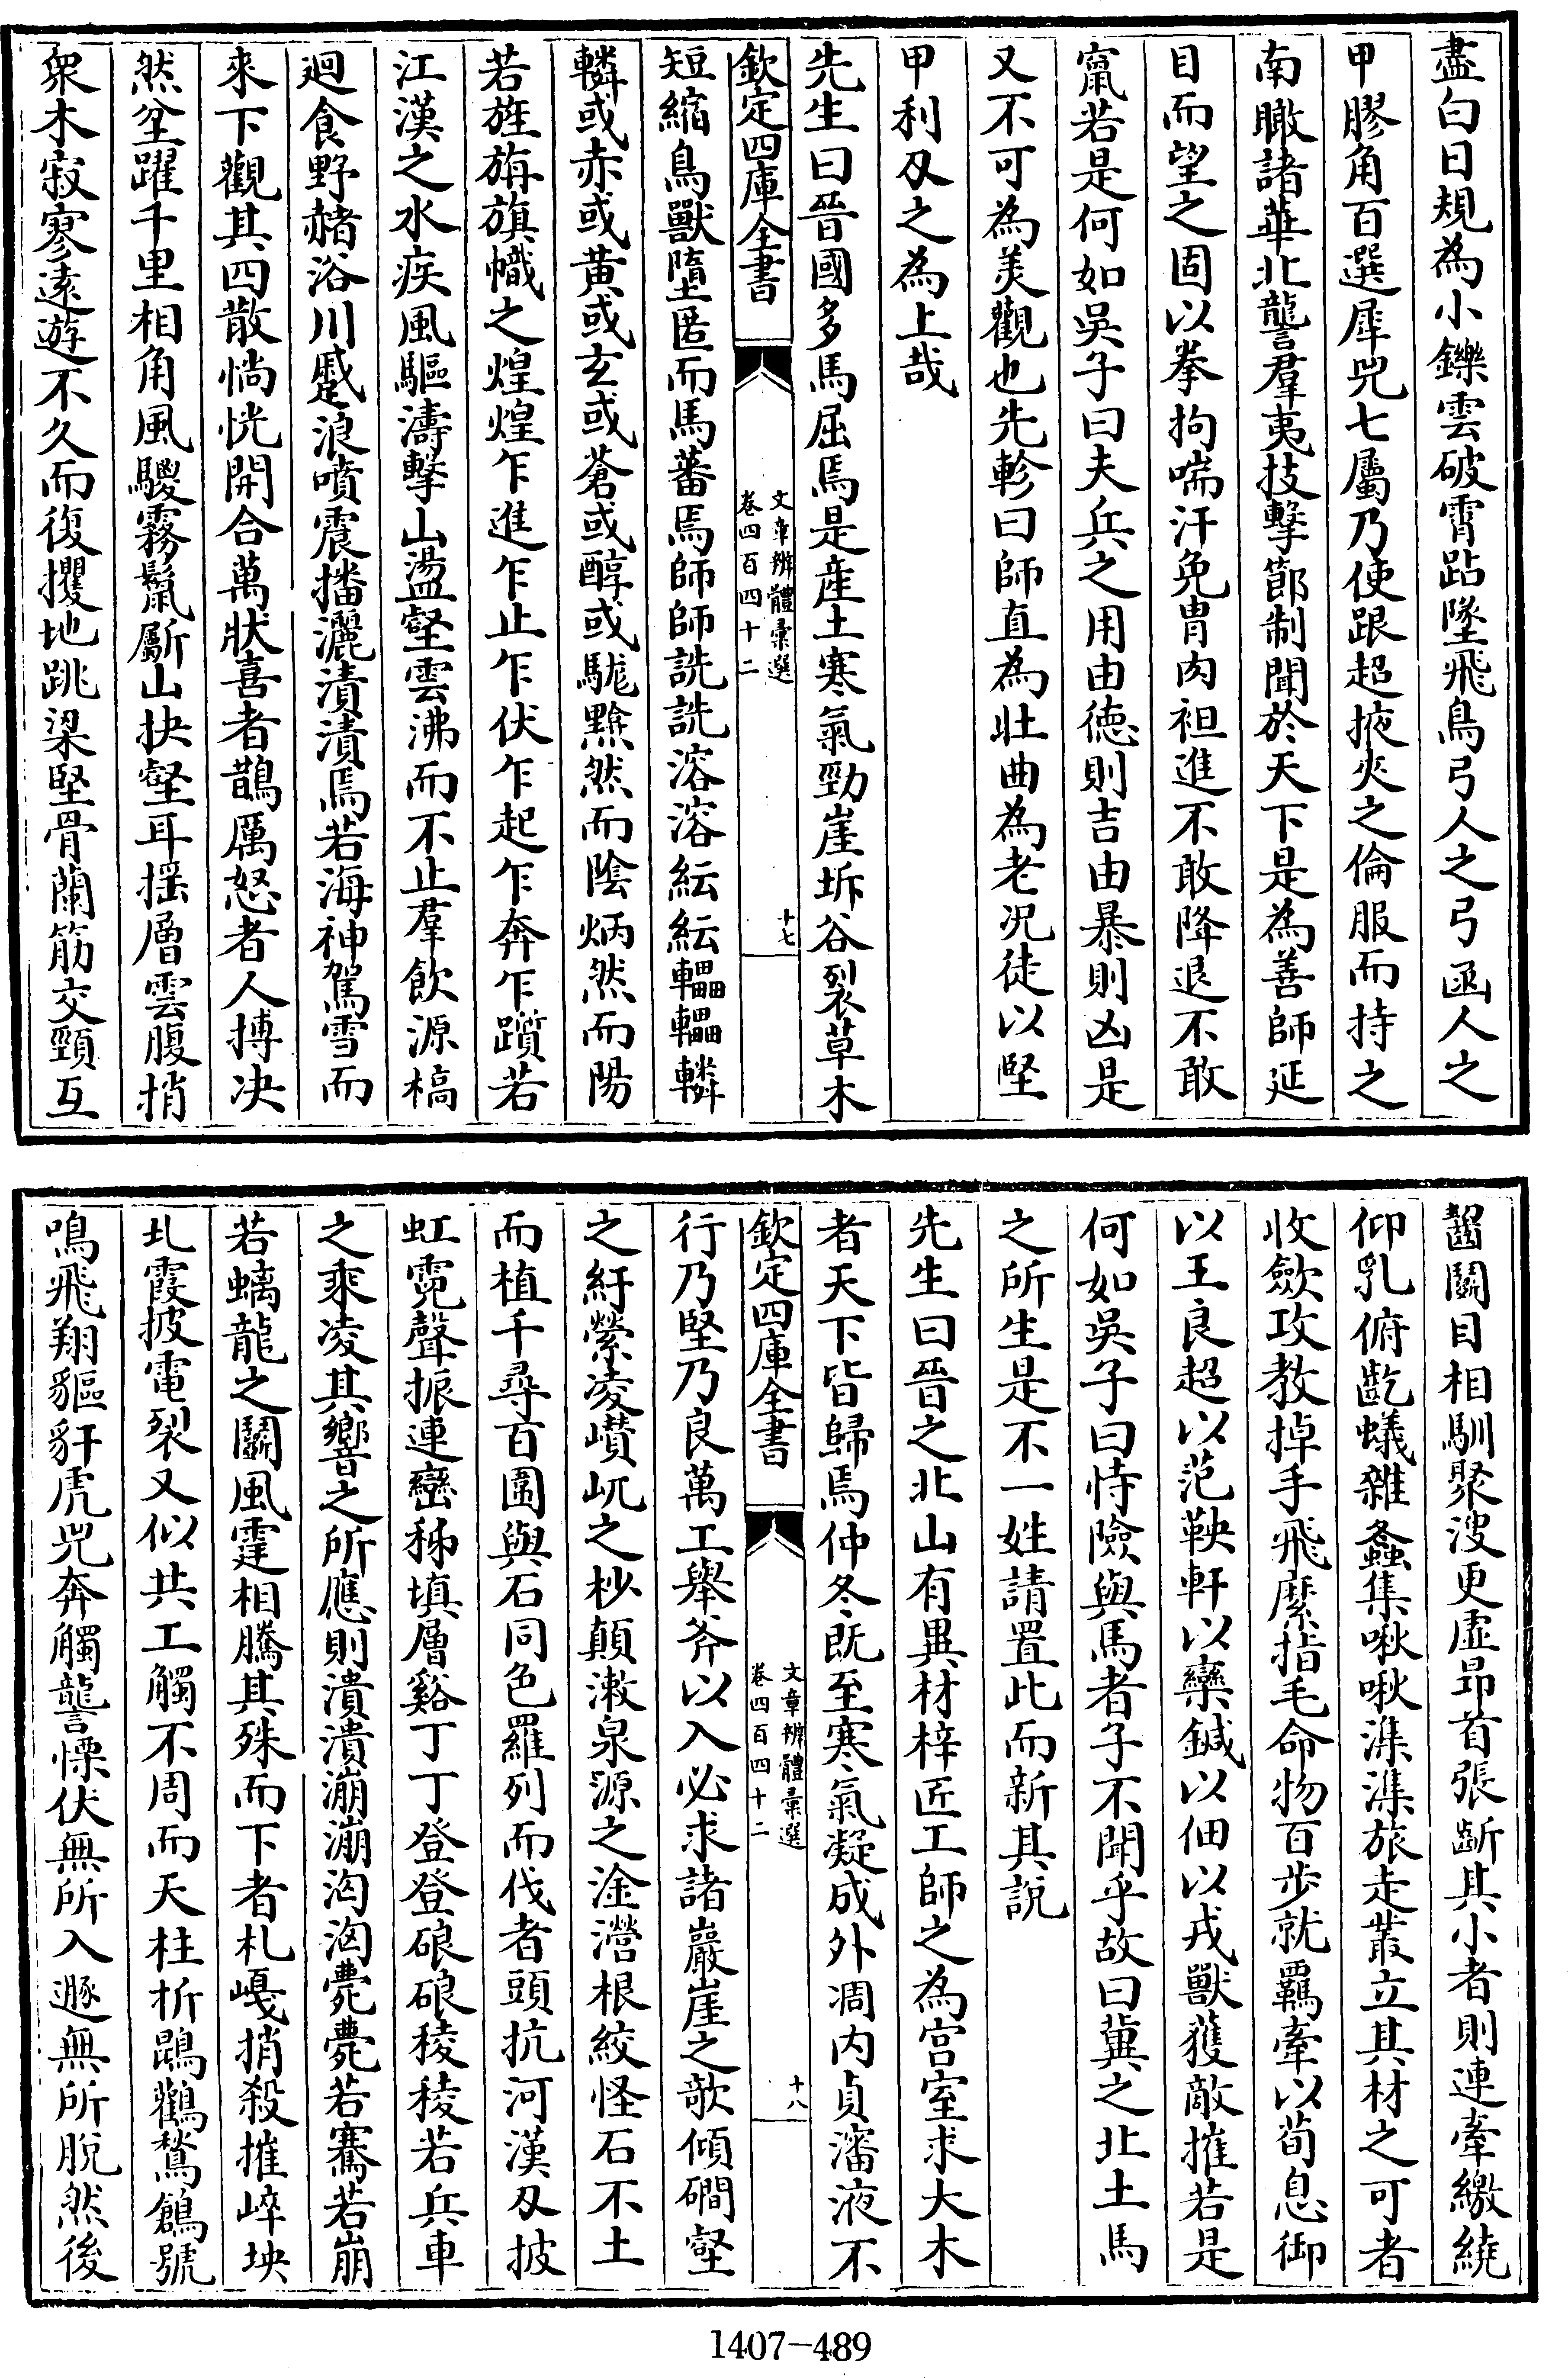 盡白日規為小鑠雲破霄跕墜飛鳥弓人之弓函人之
甲膠角百選犀兕七屬乃使跟超掖夾之倫服而持之
南瞰諸華北讋羣夷技擊節制聞於天下是為善師延
目而望之固以拳拘喘汗免冑肉袒進不敢降退不敢
竄若是何如吳子曰夫兵之用由德則吉由暴則凶是
又不可為美觀也先軫曰師直為壯曲為老況徒以堅
甲利刄之為上哉
先生曰晉國多馬屈焉是産土寒氣勁崖坼谷裂草木
欽定四庫全書
文章辨體彙選
卷四百四十二
十七
短縮鳥獸墮匿而馬蕃焉師師詵詵溶溶紜紜轠轠轔
轔或赤或黄或玄或蒼或醇或駹黭然而陰炳然而陽
若旌旃旗幟之煌煌乍進乍止乍伏乍起乍奔乍躓若
江漢之水疾風驅濤擊山盪壑雲沸而不止羣飲源槁
迴食野赭浴川蹙浪噴震播灑濆濆焉若海神駕雪而
來下觀其四散惝恍開合萬狀喜者鵲厲怒者人搏决
然坌躍千里相角風騣霧鬛斸山抉壑耳揺層雲腹捎
衆木寂寥遠遊不久而復攫地跳梁堅骨蘭筋交頸互
齧鬬目相馴聚溲更虚昂首張齗其小者則連牽繳繞
仰乳俯齕蟻雜螽集啾啾潗潗旅走叢立其材之可者
收斂攻教掉手飛縻指毛命物百步就羈牽以荀息御
以王良超以范鞅軒以欒鍼以佃以戎獸獲敵摧若是
何如吳子曰恃險與馬者子不聞乎故曰冀之北土馬
之所生是不一姓請置此而新其說
先生曰晉之北山有異材梓匠工師之為宫室求大木
者天下皆歸焉仲冬既至寒氣凝成外凋内貞瀋液不
欽定四庫全書
文章辨體彙選
卷四百四十二
十八
行乃堅乃良萬工舉斧以入必求諸巖崖之欹傾磵壑
之紆縈凌巑岏之杪顛漱泉源之淦瀯根絞怪石不土
而植千尋百圍與石同色羅列而伐者頭抗河漢刄披
虹霓聲振連巒柹填層谿丁丁登登硠硠稜稜若兵車
之乘凌其響之所應則潰潰漰漰洶洶薨薨若騫若崩
若螭龍之鬭風霆相騰其殊而下者札嶻捎殺摧崒坱
圠霞披電裂又似共工觸不周而天柱折鵾鸛鶖鶬號
鳴飛翔貙豻虎兕奔觸讋慄伏無所入遯無所脫然後
1407-489